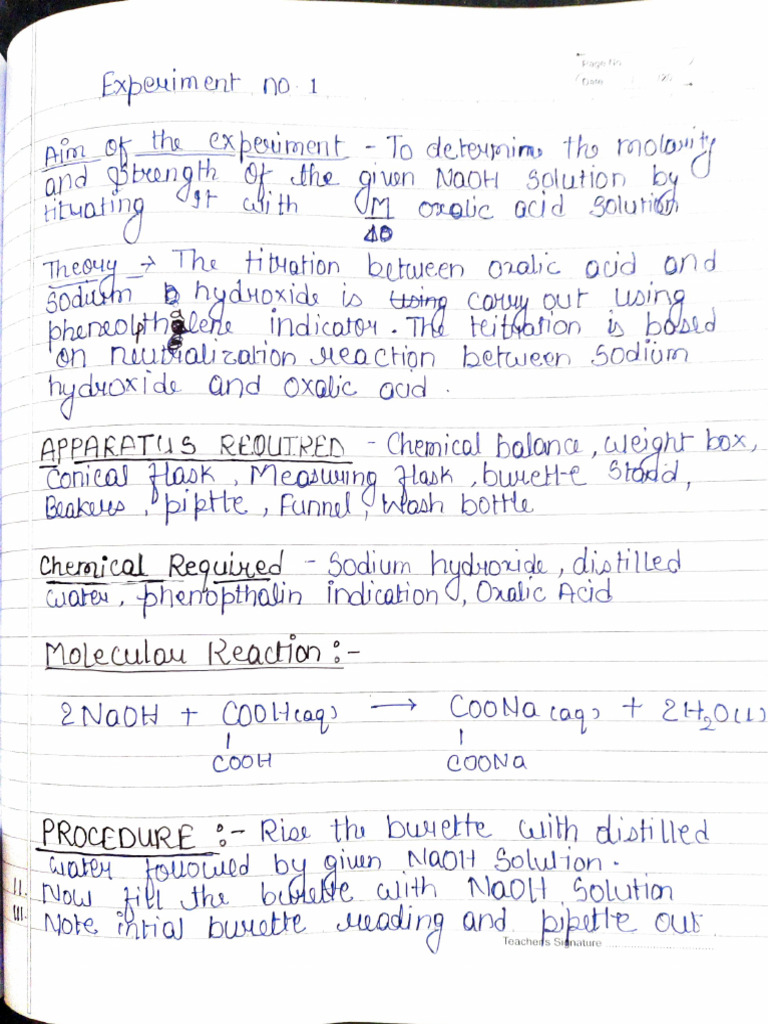 Page No.
Date
Experiment no. 1
Aim of the experiment - To determine the molarity
and Strength Of the given NaOH Solution by
tituating It with M/10 oxalic acid Solution
Theory → The titration between oxalic acid and
Sodium hydroxide is carry out using
pheneolphthalene indicator. The teitration is based
on neutralization reaction between Sodium
hydroxide and oxalic acid.
APPARATUS REQUIRED - Chemical balance, weight box,
Conical flask, Measuring flask, burette Stand,
Beakers, piptte, Funnel, Wash bottle
Chemical Required - Sodium hydroxide, distilled
water, phenopthalin indication, Oxalic Acid
Molecular Reaction :-
2NaOH + COOH(aq) → COONa (aq) + 2H₂O(l)
COOH COONa
PROCEDURE :- Rise the burette with distilled
water followed by given NaOH Solution.
II. Now fill the burette with NaOH Solution
III. Note intial burette reading and pipette out
Teacher's Signature